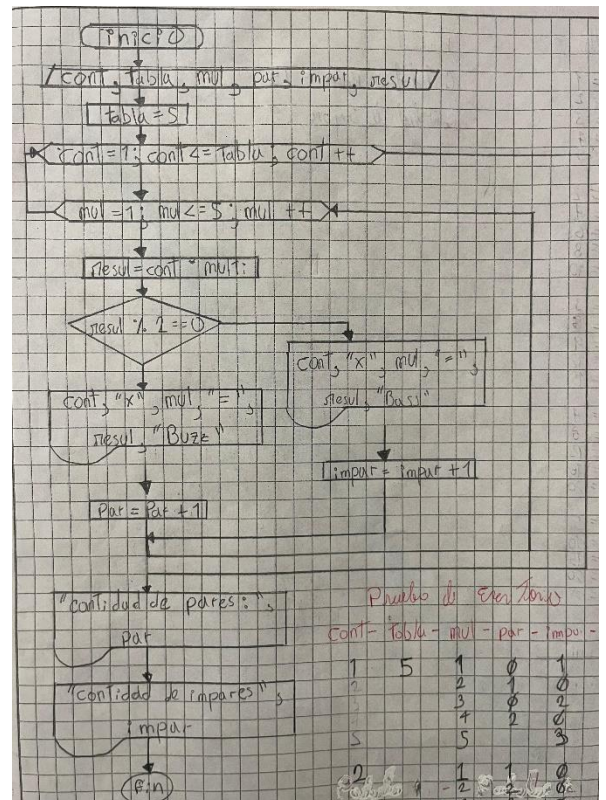 inicio
cont, tabla, mul, par, impar, resul
tabla = 5
cont = 1; cont <= tabla; cont ++
mul = 1; mul <= 5; mul ++
resul = cont * multi
resul % 2 == 0
cont, "x", mul, "=",
resul, "Bass"
cont, "x", mul, "=",
resul, "Buzz"
impar = impar + 1
Par = Par + 1
"cantidad de pares:",
par
"cantidad de impares",
impar
fin
Prueba de
cont - tabla - mul - par - impa -
1 5 1 0 1
2 2 1 0
3 3 0 2
4 2 0
5 5 3
2 1 1 0
2 2 0